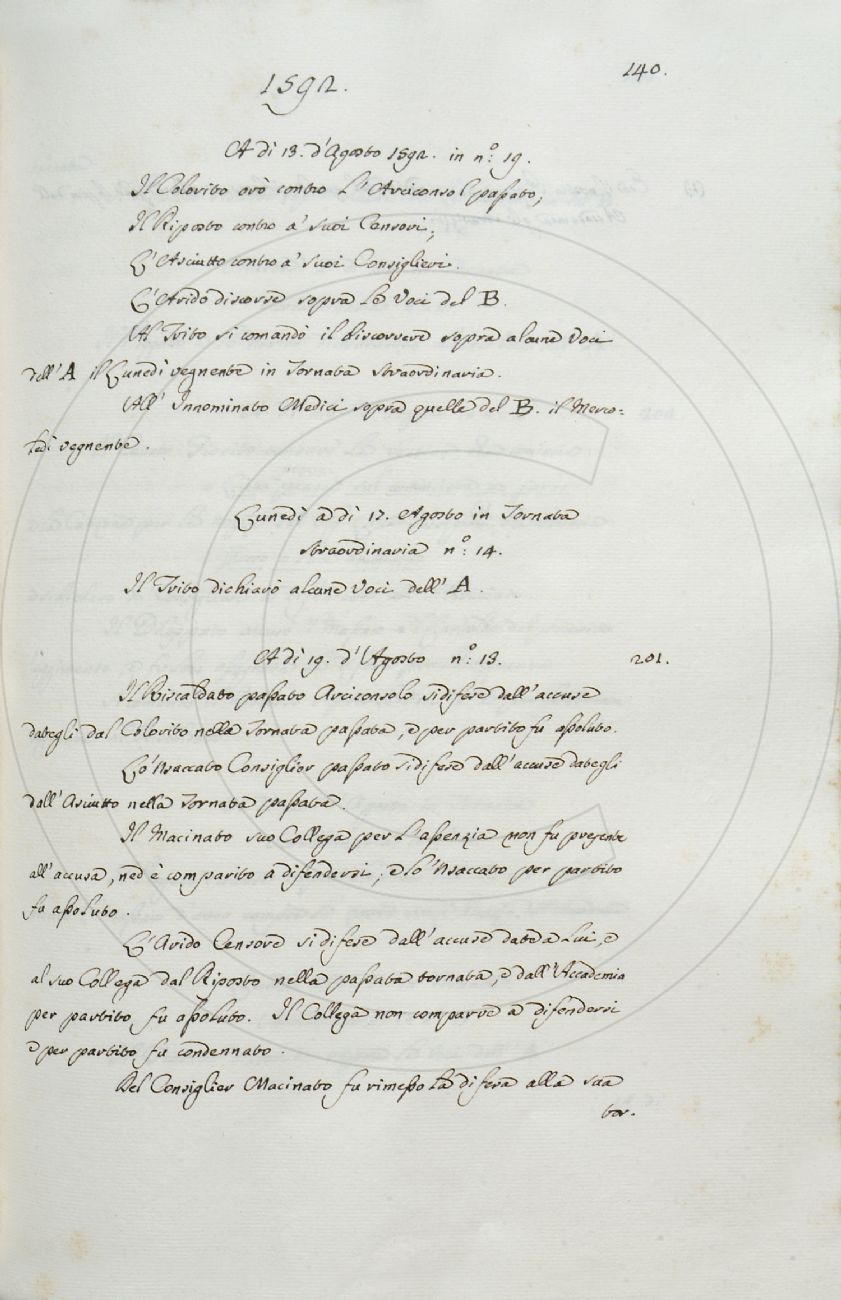 140.
1592.
A dì 13. d'Agosto 1592. in n.º 19.
Il Colorito orò contro L'Arciconsol passato;
Il Riposto contro a' suoi Censori;
L'Asciutto contro a' suoi Consiglieri.
L'Arido discorse sopra Le Voci del B.
Al Trito si comandò il discorrere sopra alcune Voci
dell'A il Lunedì vegnente in Tornata straordinaria.
All' Innominato Medici sopra quelle del B. il Merco-
ledì vegnente.
Lunedì a dì 17. Agosto in Tornata
straordinaria n.º 14.
Il Trito dichiarò alcune Voci dell'A.
A dì 19. d'Agosto n.º 13. 201.
Il Riscaldato passato Arciconsolo si difese dall'accuse
dategli dal Colorito nella Tornata passata, e per partito fu assoluto.
Lo 'Nsaccato Consiglier passato si difese dall'accuse dategli
dall'Asciutto nella Tornata passata.
Il Macinato suo Collega per L'assenzia non fu presente
all'accusa, ned è comparito a difendersi; e lo 'Nsaccato per partito
fu assoluto.
L'Arido Censore si difese dall'accuse date a Lui, e
al suo Collega dal Riposto nella passata tornata, e dall'Accademia
per partito fu assoluto. Il Collega non comparve a difendersi
e per partito fu condennato.
Del Consiglier Macinato fu rimesso La difesa alla sua
tor.